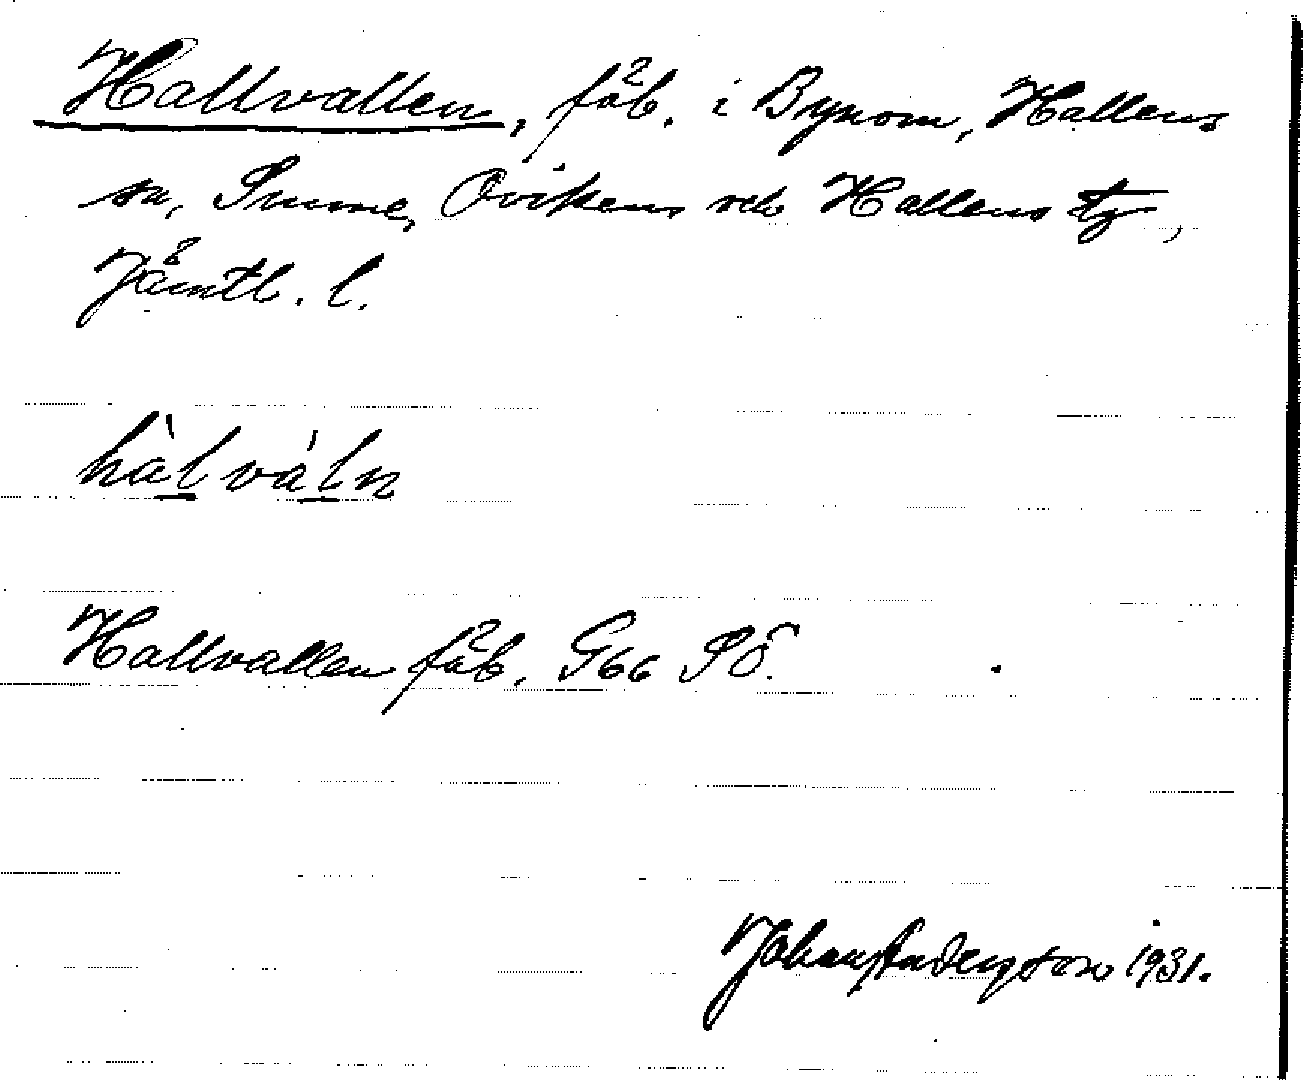 Hallvallen, fäb. i Bynom, Hallens
sn, Sunne, Ovikens och Hallens tg,
Jämtl. l.
hàl̲ vál̲n
Hallvallen fäb. G66 SÖ.
Johan Anderzton 1931.